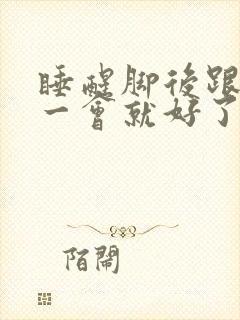 睡醒脚後跟
一會就好了
陌鬧